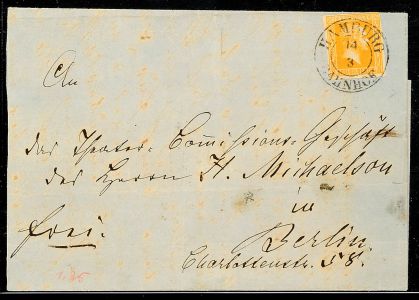 HAMBURG
14
3
BAHNHOF
An
das Theater-Comissions-Geschäft
des Herrn H. Michaelson
in
frei.
Berlin.
Charlottenstr. 58.